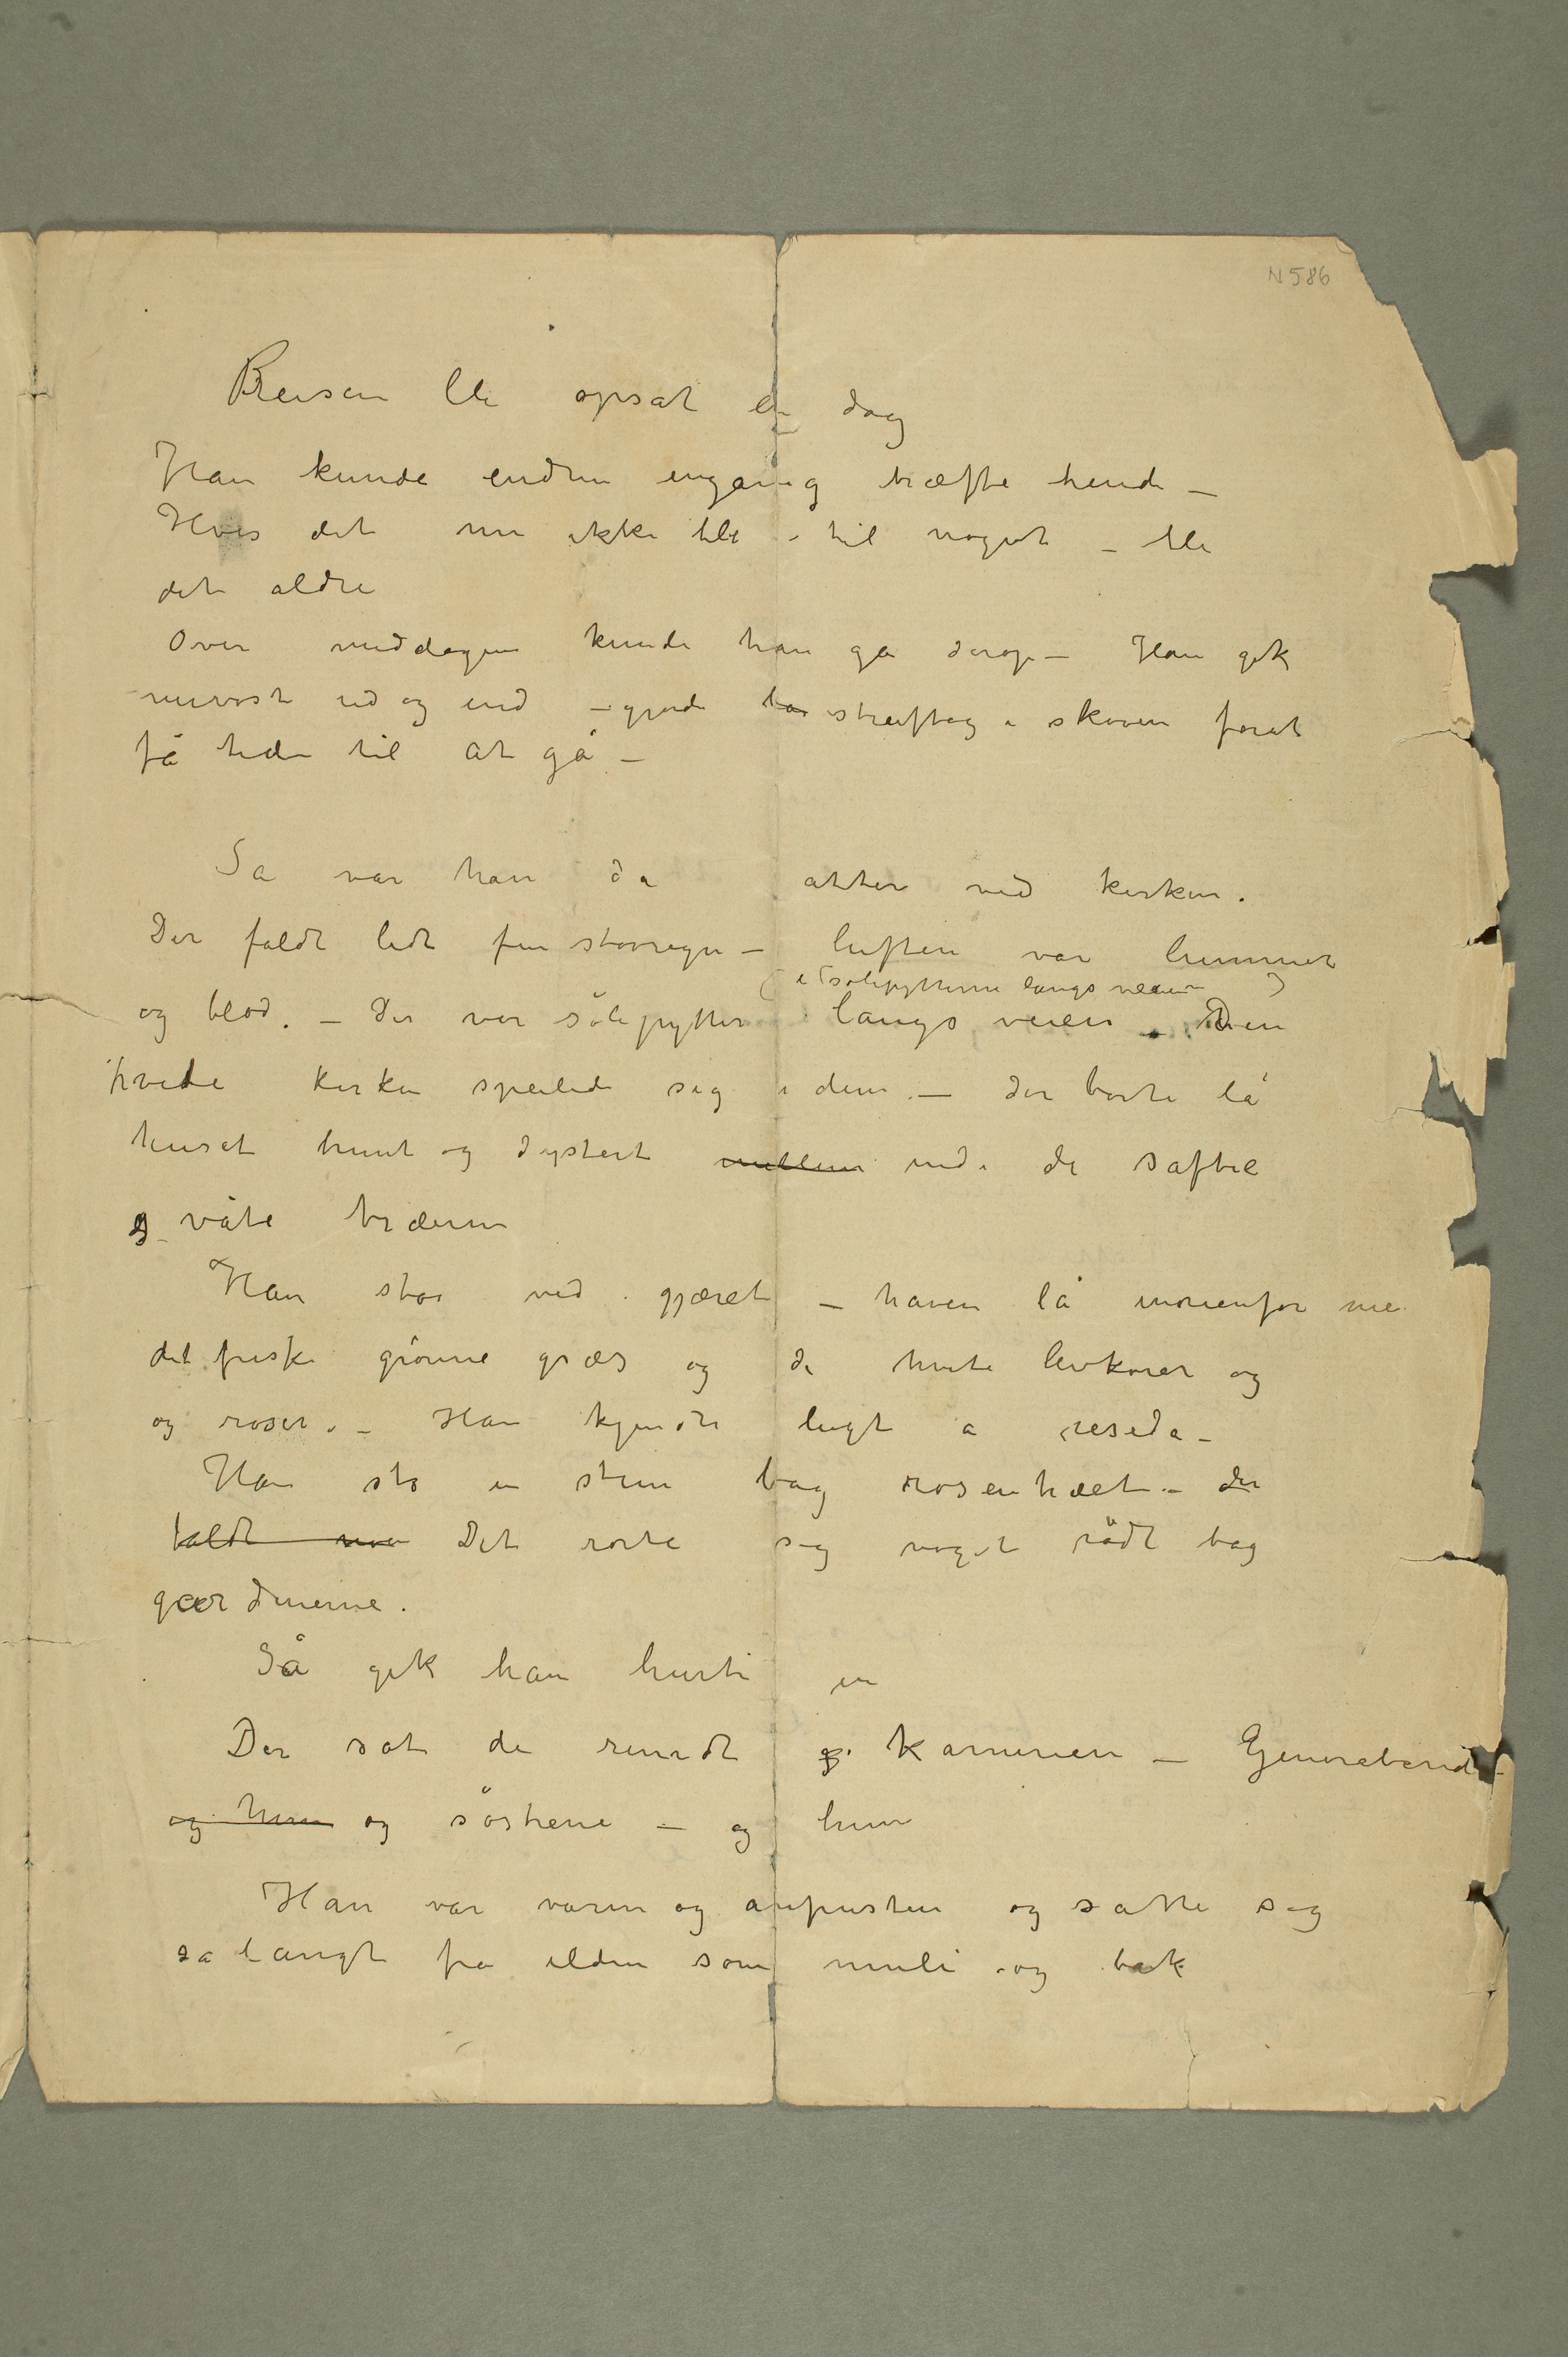 N 586
Reisen ble opsat en dag
Han kunde endnu engang træffe hende –
Hvis det nu ikke ble til noget – ble
det aldri
Over middagen kunde han gå derop – Han gik
nervøst ud og ind – gjorde streiftog i skoven forat
få tiden til at gå –
Så var han da atter ved kirken.
Der faldt lidt fin støvregn – luften var lummer
(i sølepytterne langs veien)
og blød. – Der var sølepytter langs veien – Den
hvide kirken speilede sig i dem. – der borte lå
huset brunt og dystert mellem inde i de saftie
og våte trærne
Han sto ved gjæret – haven lå indenfor me
det friske grønne græs og de hvite levkøier og
og roser. – Han kjendte lugt a reseda –
Han sto en stun bag rosentræet – der
faldt noe Det rørte sig noget rødt bag
gardinerne.
Så gik han hurti in
Der sat de rundt kaminen – Generalinden
og hun og søstrene – og hun
Han var varm og anpusten og satte sig
så langt fra ilden som muli og bak